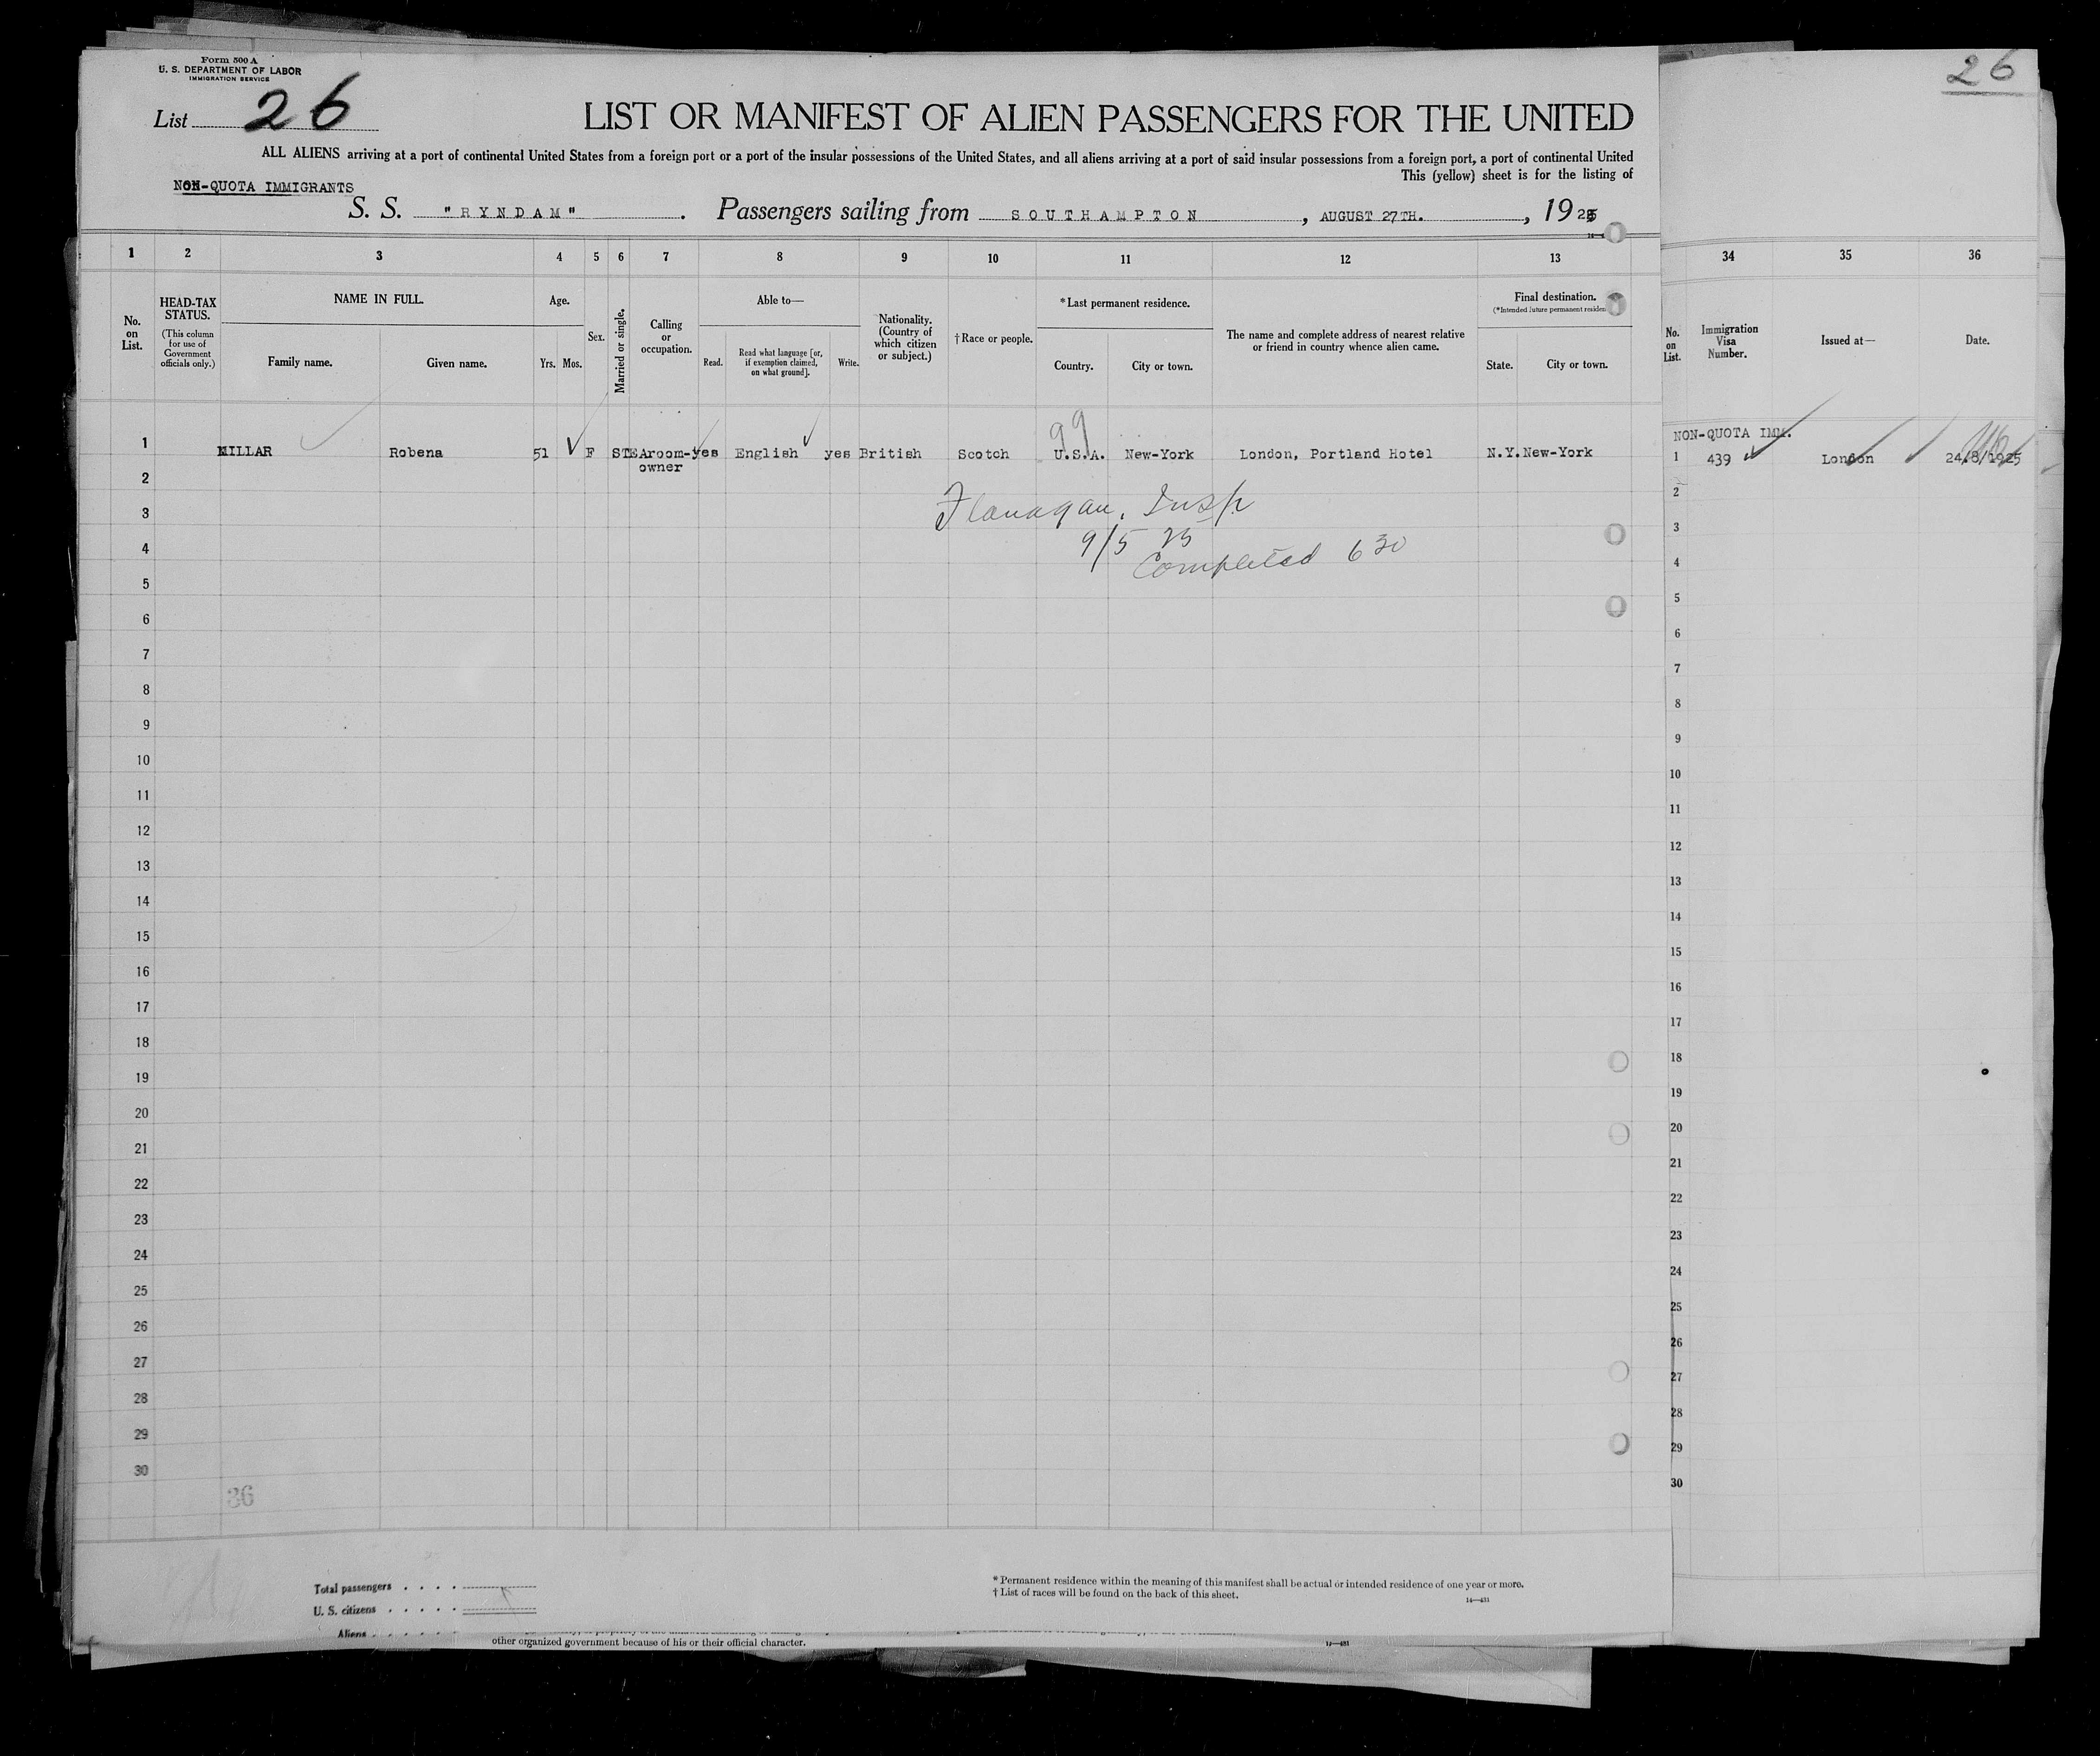 Form 500 A
U. S. DEPARTMENT OF LABOR
IMMIGRATION SERVICE
List 26
26
LIST OR MANIFEST OF ALIEN PASSENGERS FOR THE UNITED
ALL ALIENS arriving at a port of continental United States from a foreign port or a port of the insular possessions of the United States, and all aliens arriving at a port of said insular possessions from a foreign port, a port of continental United
This (yellow) sheet is for the listing of
NON-QUOTA IMMIGRANTS
S. S. "RYNDAM". Passengers sailing from SOUTHAMPTON, AUGUST 27TH., 1925
1 2 3 4 5 6 7 8 9 10 11 12 13 34 35 36
No. on List.
HEAD-TAX STATUS.
(This column for use of Government officials only.)
NAME IN FULL.
Family name. Given name.
Age.
Yrs. Mos.
Sex.
Married or single.
Calling or occupation.
Able to—
Read. Read what language [or, if exemption claimed, on what ground]. Write.
Nationality. (Country of which citizen or subject.)
†Race or people.
*Last permanent residence.
Country. City or town.
The name and complete address of nearest relative or friend in country whence alien came.
Final destination.
(*Intended future permanent residen
State. City or town.
No. on List.
Immigration Visa Number.
Issued at—
Date.
99
NON-QUOTA IMM.
1 MILLAR Robena 51 F S TEAroom-owner yes English yes British Scotch U.S.A. New-York London, Portland Hotel N.Y. New-York 1 439 London 24/8/1925
Flanagan. Insp
9/5 25
Completed 6 30
2 2
3 3
4 4
5 5
6 6
7 7
8 8
9 9
10 10
11 11
12 12
13 13
14 14
15 15
16 16
17 17
18 18
19 19
20 20
21 21
22 22
23 23
24 24
25 25
26 26
27 27
28 28
29 29
30 30
36
Total passengers . . . .
U. S. citizens . . . . .
Aliens . . . . . .
*Permanent residence within the meaning of this manifest shall be actual or intended residence of one year or more.
†List of races will be found on the back of this sheet.
14—431
other organized government because of his or their official character.